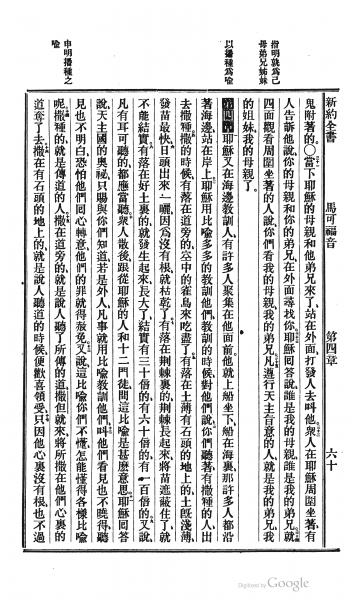 新約全書
馬可福音
第四章
六十
指明孰爲己
母弟兄姊妹
以播種爲喩
申明播種之
喩
鬼附著的〇當下耶穌的母親和他弟兄來了站在外面打發人去叫他衆人在耶穌周圍坐著有
人告訴他說你的母親和你的弟兄在外面尋找你耶穌回答說誰是我的母親誰是我的弟兄就
四面觀看周圍坐著的人說你們看我的母親我的弟兄凡遵行天主旨意的人就是我的弟兄我
的姐妹我的母親了
第四章耶穌又在海邊敎訓人有許多人聚集在他面前他就上船坐下船在海裏那許多人都沿
著海邊站在岸上耶穌用比喩多多的敎訓他們敎訓的時候對他們說你們聽著有撒種的人出
去撒種撒的時候有落在道旁的空中的雀鳥來吃盡了有落在土薄有石頭的地上的土旣淺薄
發苗最快日頭出來一曬因爲沒有根就枯乾了有落在荆棘裏的荆棘長起來將苗遮蔽住了就
不能結實有落在好土裏的就發生起來長大了結實有三十倍的有六十倍的有一百倍的又說
凡有耳可聽的都應當聽衆人散後跟從耶穌的人和十二門徒問這比喩是甚麼意思耶穌回答
說天主國的奧祕只賜與你們知道若是外人凡事就用比喩敎訓他們叫他們看見也不曉得聽
見也不明白恐怕他們回心轉意他們的罪就得赦免又說這比喩你們不懂怎能懂得各樣比喩
呢撒種的就是傳道的人撒在道旁的就是說人聽了所傳的道撒但就來將所撒在他們心裏的
道奪了去撒在有石頭的地上的就是說人聽道的時候便歡喜領受只因他心裏沒有根也不過
Digitized by Google